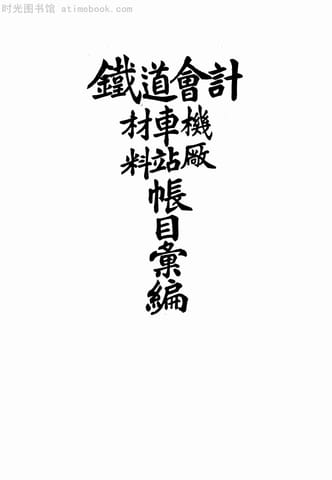 时光图书馆 atimobook.com
鐵道會計
機廠
車站
材料
帳目彙編